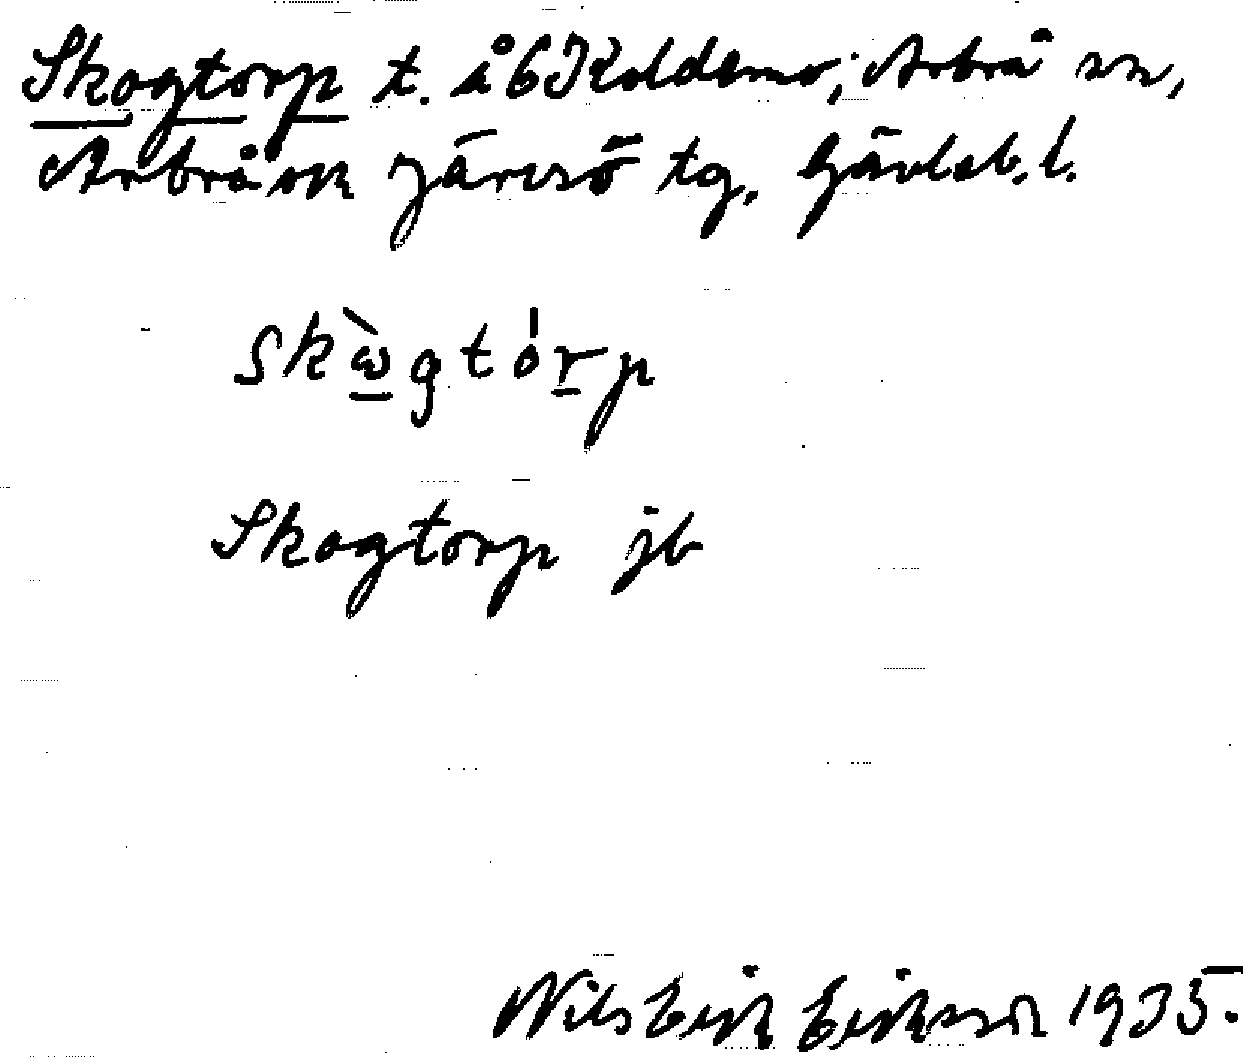 Skogtorp t. å 6 Koldemo, Arbrå sn,
Arbrå ok Järvsö tg. Gävleb. l.
Skògtórp
Skogtorp jb
Nils Erik Eriksson 1935.